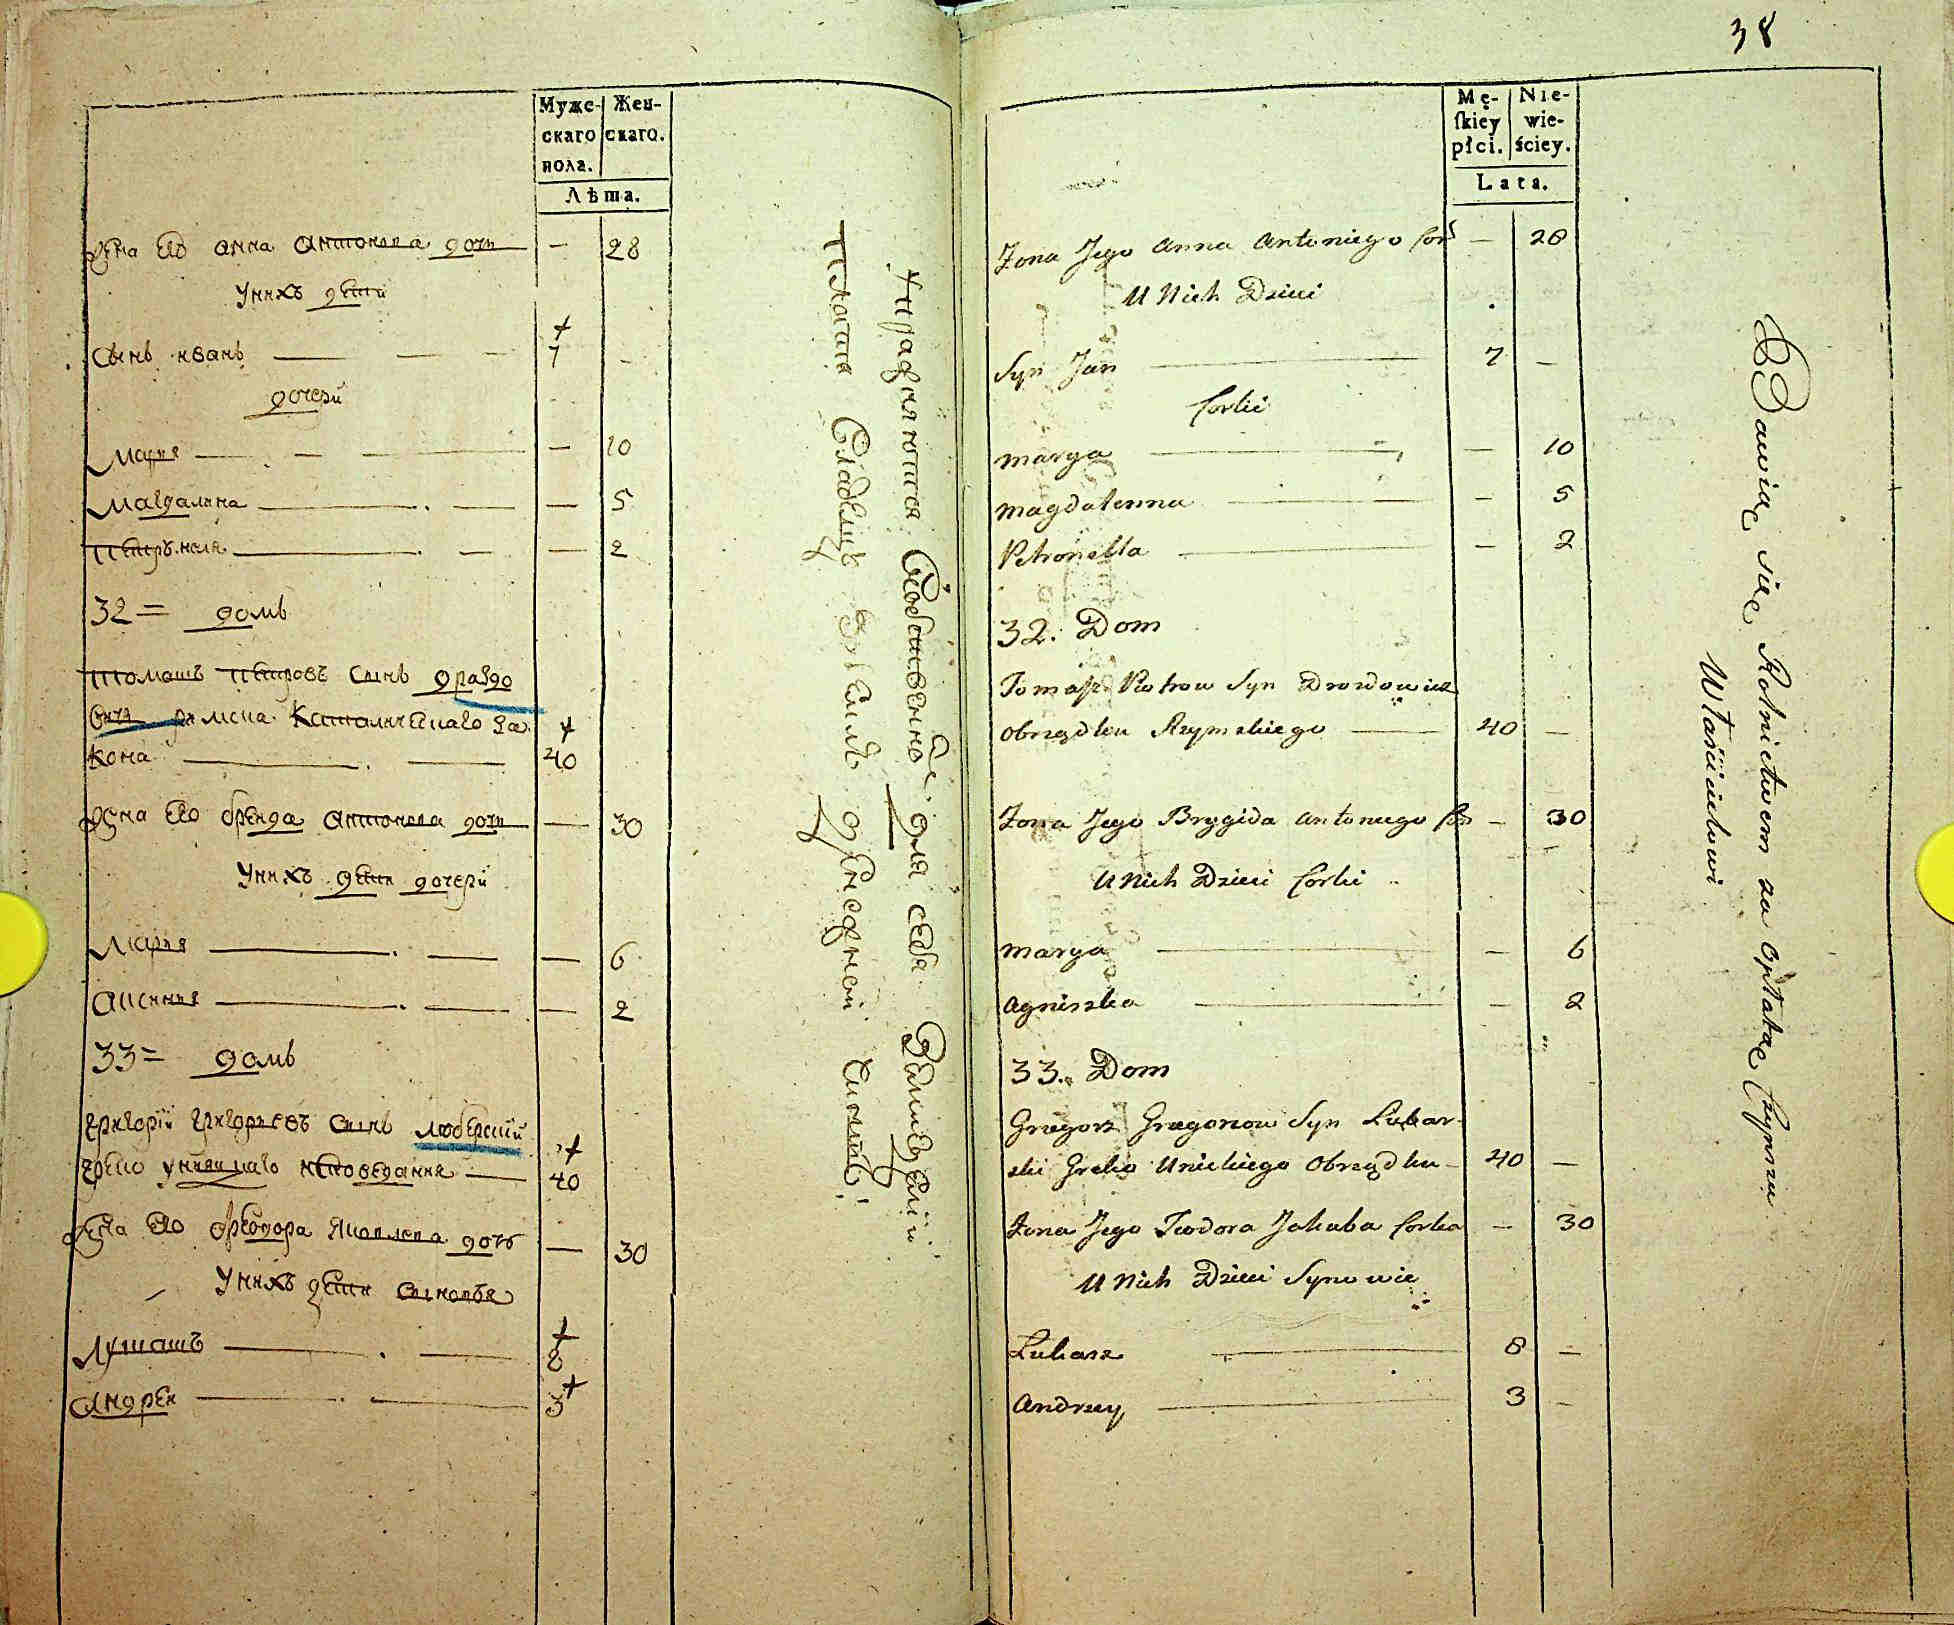 Муже-
скаго
пола.
Жен-
скаго.
Лѣта.
жена его анна антонова дочи — 28
У нихъ дети
Сынъ иванъ — 7 —
дочери
Марыя — 10
Магдалина — 5
Петрунеля — 2
32 = домъ
Томашъ Петровъ сынъ Драздо
вичъ римска католическаго за
кона 40
жена его брегида антонова дочи — 30
У нихъ дети дочери
Марыя — 6
33 = домъ
Григорій Григорьевъ сынъ Люберскій
греко униацкаго исповедания — 40
жена его феодора яковлева дочь — 30
У нихъ дети сыновья
Лукашъ — 8
Андрей — 3
Упражняются собственно для себя
Платя владельцу
38
Mę-
skiey
płci.
Nie-
wie-
ściey.
Lata.
Zona Jego Anna Antoniego Cor — 28
U Nich Dzieci
Syn Jan — 7 —
Corki
Marya — 10
Magdalenna — 5
Petronella — 2
32. Dom
Tomasz Piotrow Syn Drozdowicz
Obrządku Rzymskiego — 40 —
Zona Jego Brygida Antoniego Cor — 30
U Nich Dzieci Corki
Marya — 6
Agniszka — 2
33. Dom
Grzegorz Gregorow Syn Lubar-
ski Greko Unickiego Obrządku — 40 —
Zona Jego Teodora Jakuba Corka — 30
U Nich Dzieci Synowie
Lukasz — 8 —
Andrzey — 3 —
Bawiąc się Rolnictwem za opłatą Czynszu
Właścicielowi